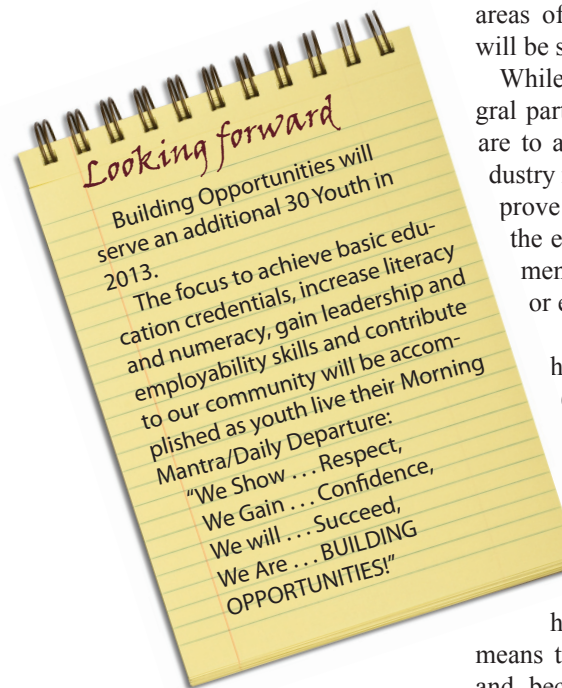 Looking forward
Building Opportunities will
serve an additional 30 Youth in
2013.
The focus to achieve basic edu-
cation credentials, increase literacy
and numeracy, gain leadership and
employability skills and contribute
to our community will be accom-
plished as youth live their Morning
Mantra/Daily Departure:
“We Show . . . Respect,
We Gain . . . Confidence,
We will . . . Succeed,
We Are . . . BUILDING
OPPORTUNITIES!”
areas of
will be s
While
gral part
are to a
dustry
prove
the e
men
or e
h
h
means t
and bec